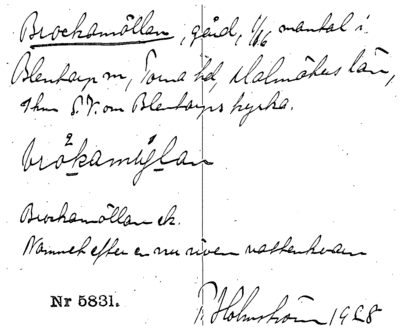 Brockamöllan, gård, 1/16 mantal i
Blentarp sn, Torna hd, Malmöhus län,
1 km S.V. om Blentarps kyrka.
Brockamöllan ek.
Namnet efter en nu riven vattenkvarn
Nr 5831.
T. Holmström 1928